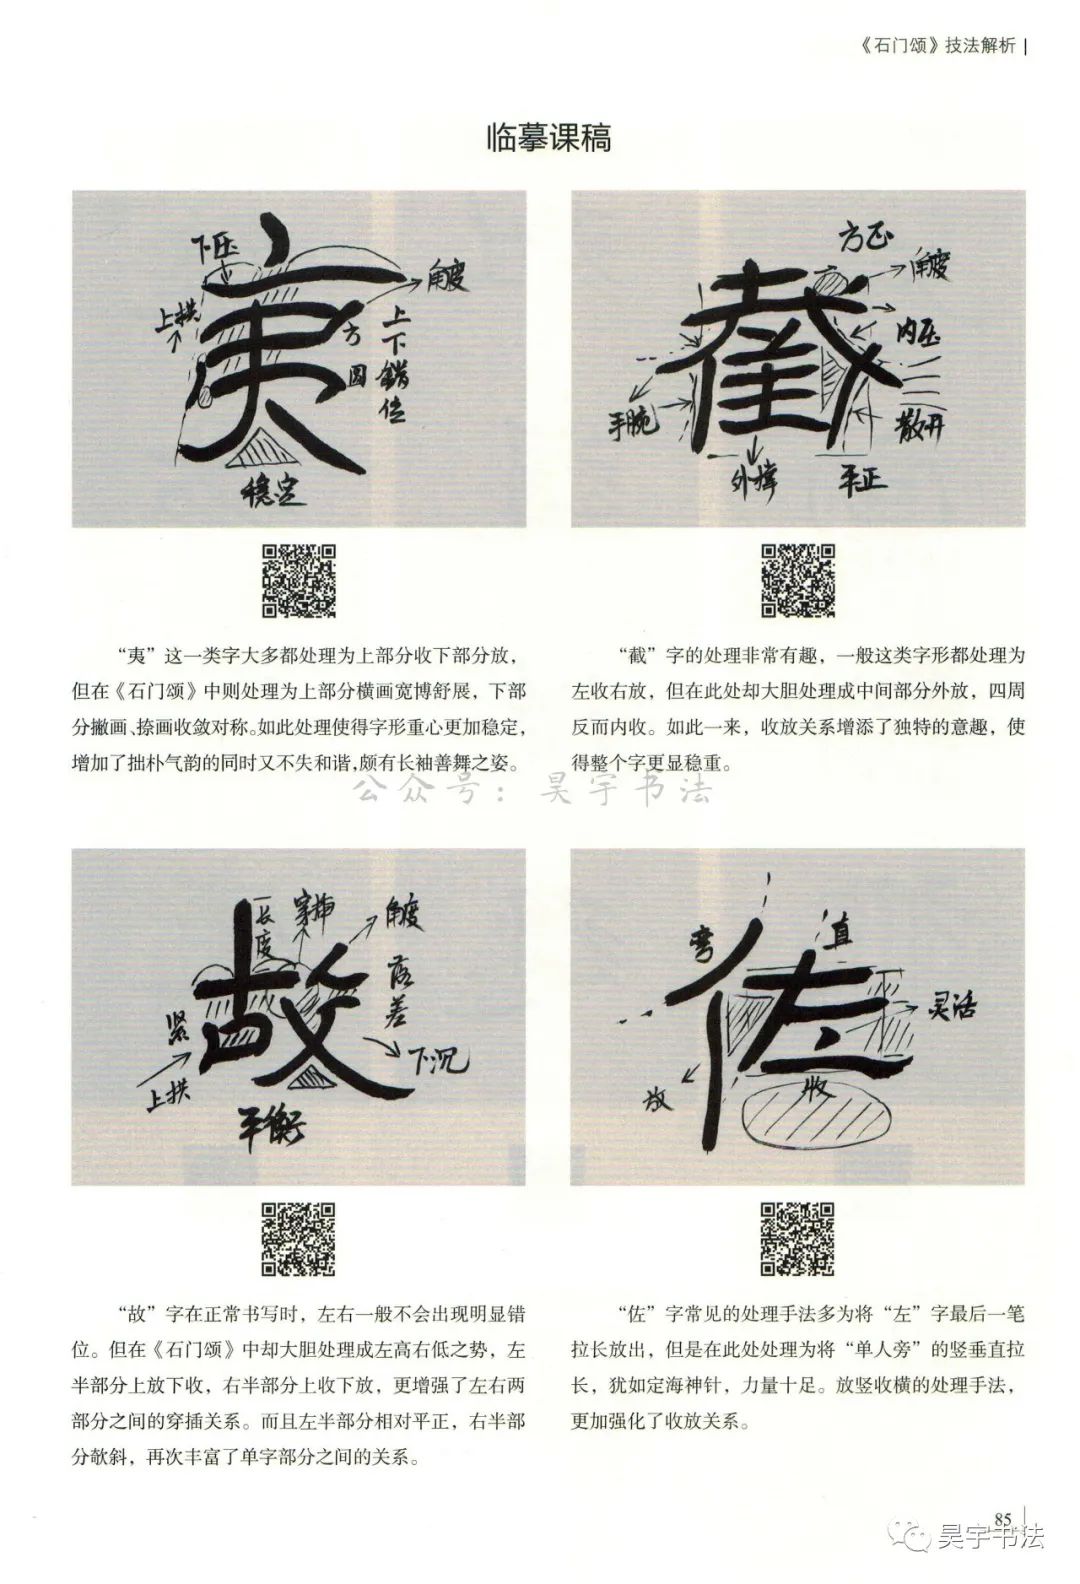 《石门颂》技法解析
临摹课稿
下压
上拱
角度
方
圆
上下错位
稳定
方正
角度
内压
散开
手腕
外撑
平正
“夷”这一类字大多都处理为上部分收下部分放，
但在《石门颂》中则处理为上部分横画宽博舒展，下部
分撇画、捺画收敛对称。如此处理使得字形重心更加稳定，
增加了拙朴气韵的同时又不失和谐，颇有长袖善舞之姿。
“截”字的处理非常有趣，一般这类字形都处理为
左收右放，但在此处却大胆处理成中间部分外放，四周
反而内收。如此一来，收放关系增添了独特的意趣，使
得整个字更显稳重。
公众号：昊宇书法
故
长度
穿插
角度
落差
下沉
紧
上拱
平衡
佐
弯
直
灵活
放
收
“故”字在正常书写时，左右一般不会出现明显错
位。但在《石门颂》中却大胆处理成左高右低之势，左
半部分上放下收，右半部分上收下放，更增强了左右两
部分之间的穿插关系。而且左半部分相对平正，右半部
分欹斜，再次丰富了单字部分之间的关系。
“佐”字常见的处理手法多为将“左”字最后一笔
拉长放出，但是在此处处理为将“单人旁”的竖垂直拉
长，犹如定海神针，力量十足。放竖收横的处理手法，
更加强化了收放关系。
85
昊宇书法